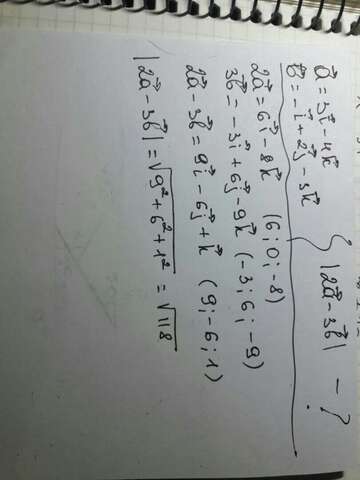 a⃗ = 3i⃗ - 4k⃗
b⃗ = -i⃗ + 2j⃗ - 3k⃗ } |2a⃗ - 3b⃗| - ?
2a⃗ = 6i⃗ - 8k⃗ (6; 0; -8)
3b⃗ = -3i⃗ + 6j⃗ - 9k⃗ (-3; 6; -9)
2a⃗ - 3b⃗ = 9i⃗ - 6j⃗ + k⃗ (9; -6; 1)
|2a⃗ - 3b⃗| = √(9² + 6² + 1²) = √118